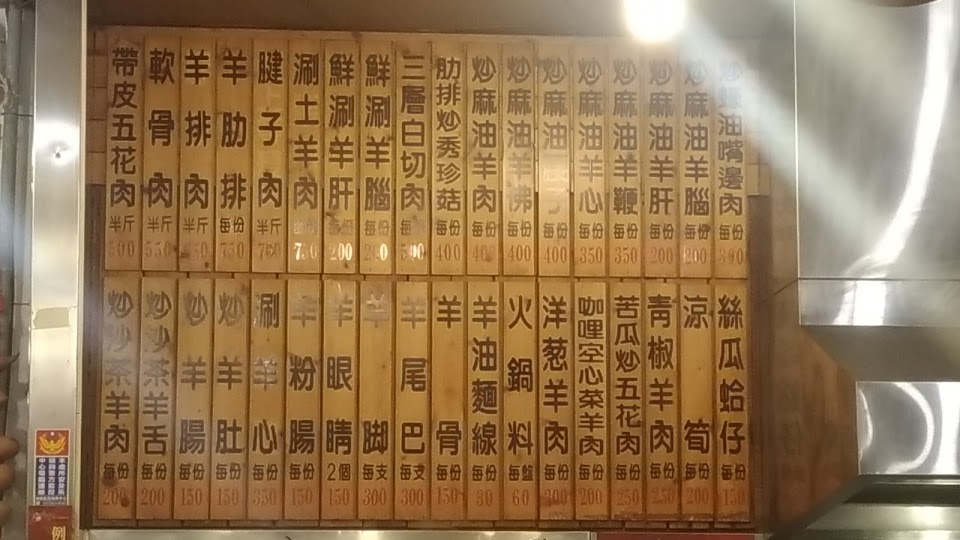 油嘴邊肉 每份
炒麻油羊腦 每份 200
炒麻油羊肝 每份 200
炒麻油羊鞭 每份 350
炒麻油羊心 每份 350
炒麻油 每份 400
炒麻油羊佛 每份 400
炒麻油羊肉 每份 400
肋排炒秀珍菇 每份 400
三層白切肉 每份 500
鮮涮羊腦 每份 200
鮮涮羊肝 每份 200
涮土羊肉 750
腱子肉 半斤
羊肋排 每份 750
羊排肉 半斤
軟骨肉 半斤 550
帶皮五花肉 半斤 500
絲瓜蛤仔 每份 150
涼筍 每份 200
青椒羊肉 每份 250
苦瓜炒五花肉 每份 250
咖哩空心菜羊肉 每份 200
洋葱羊肉 每份 200
火鍋料 每盤 60
羊油麵線 每份
羊骨 每份 150
羊尾巴 每支 300
羊脚 每支 300
羊眼睛 2個 150
羊粉腸 每份 150
涮羊心 每份 350
炒羊肚 每份 150
炒羊腸 每份 150
炒沙茶羊舌 每份 200
炒沙茶羊肉 每份 200
例